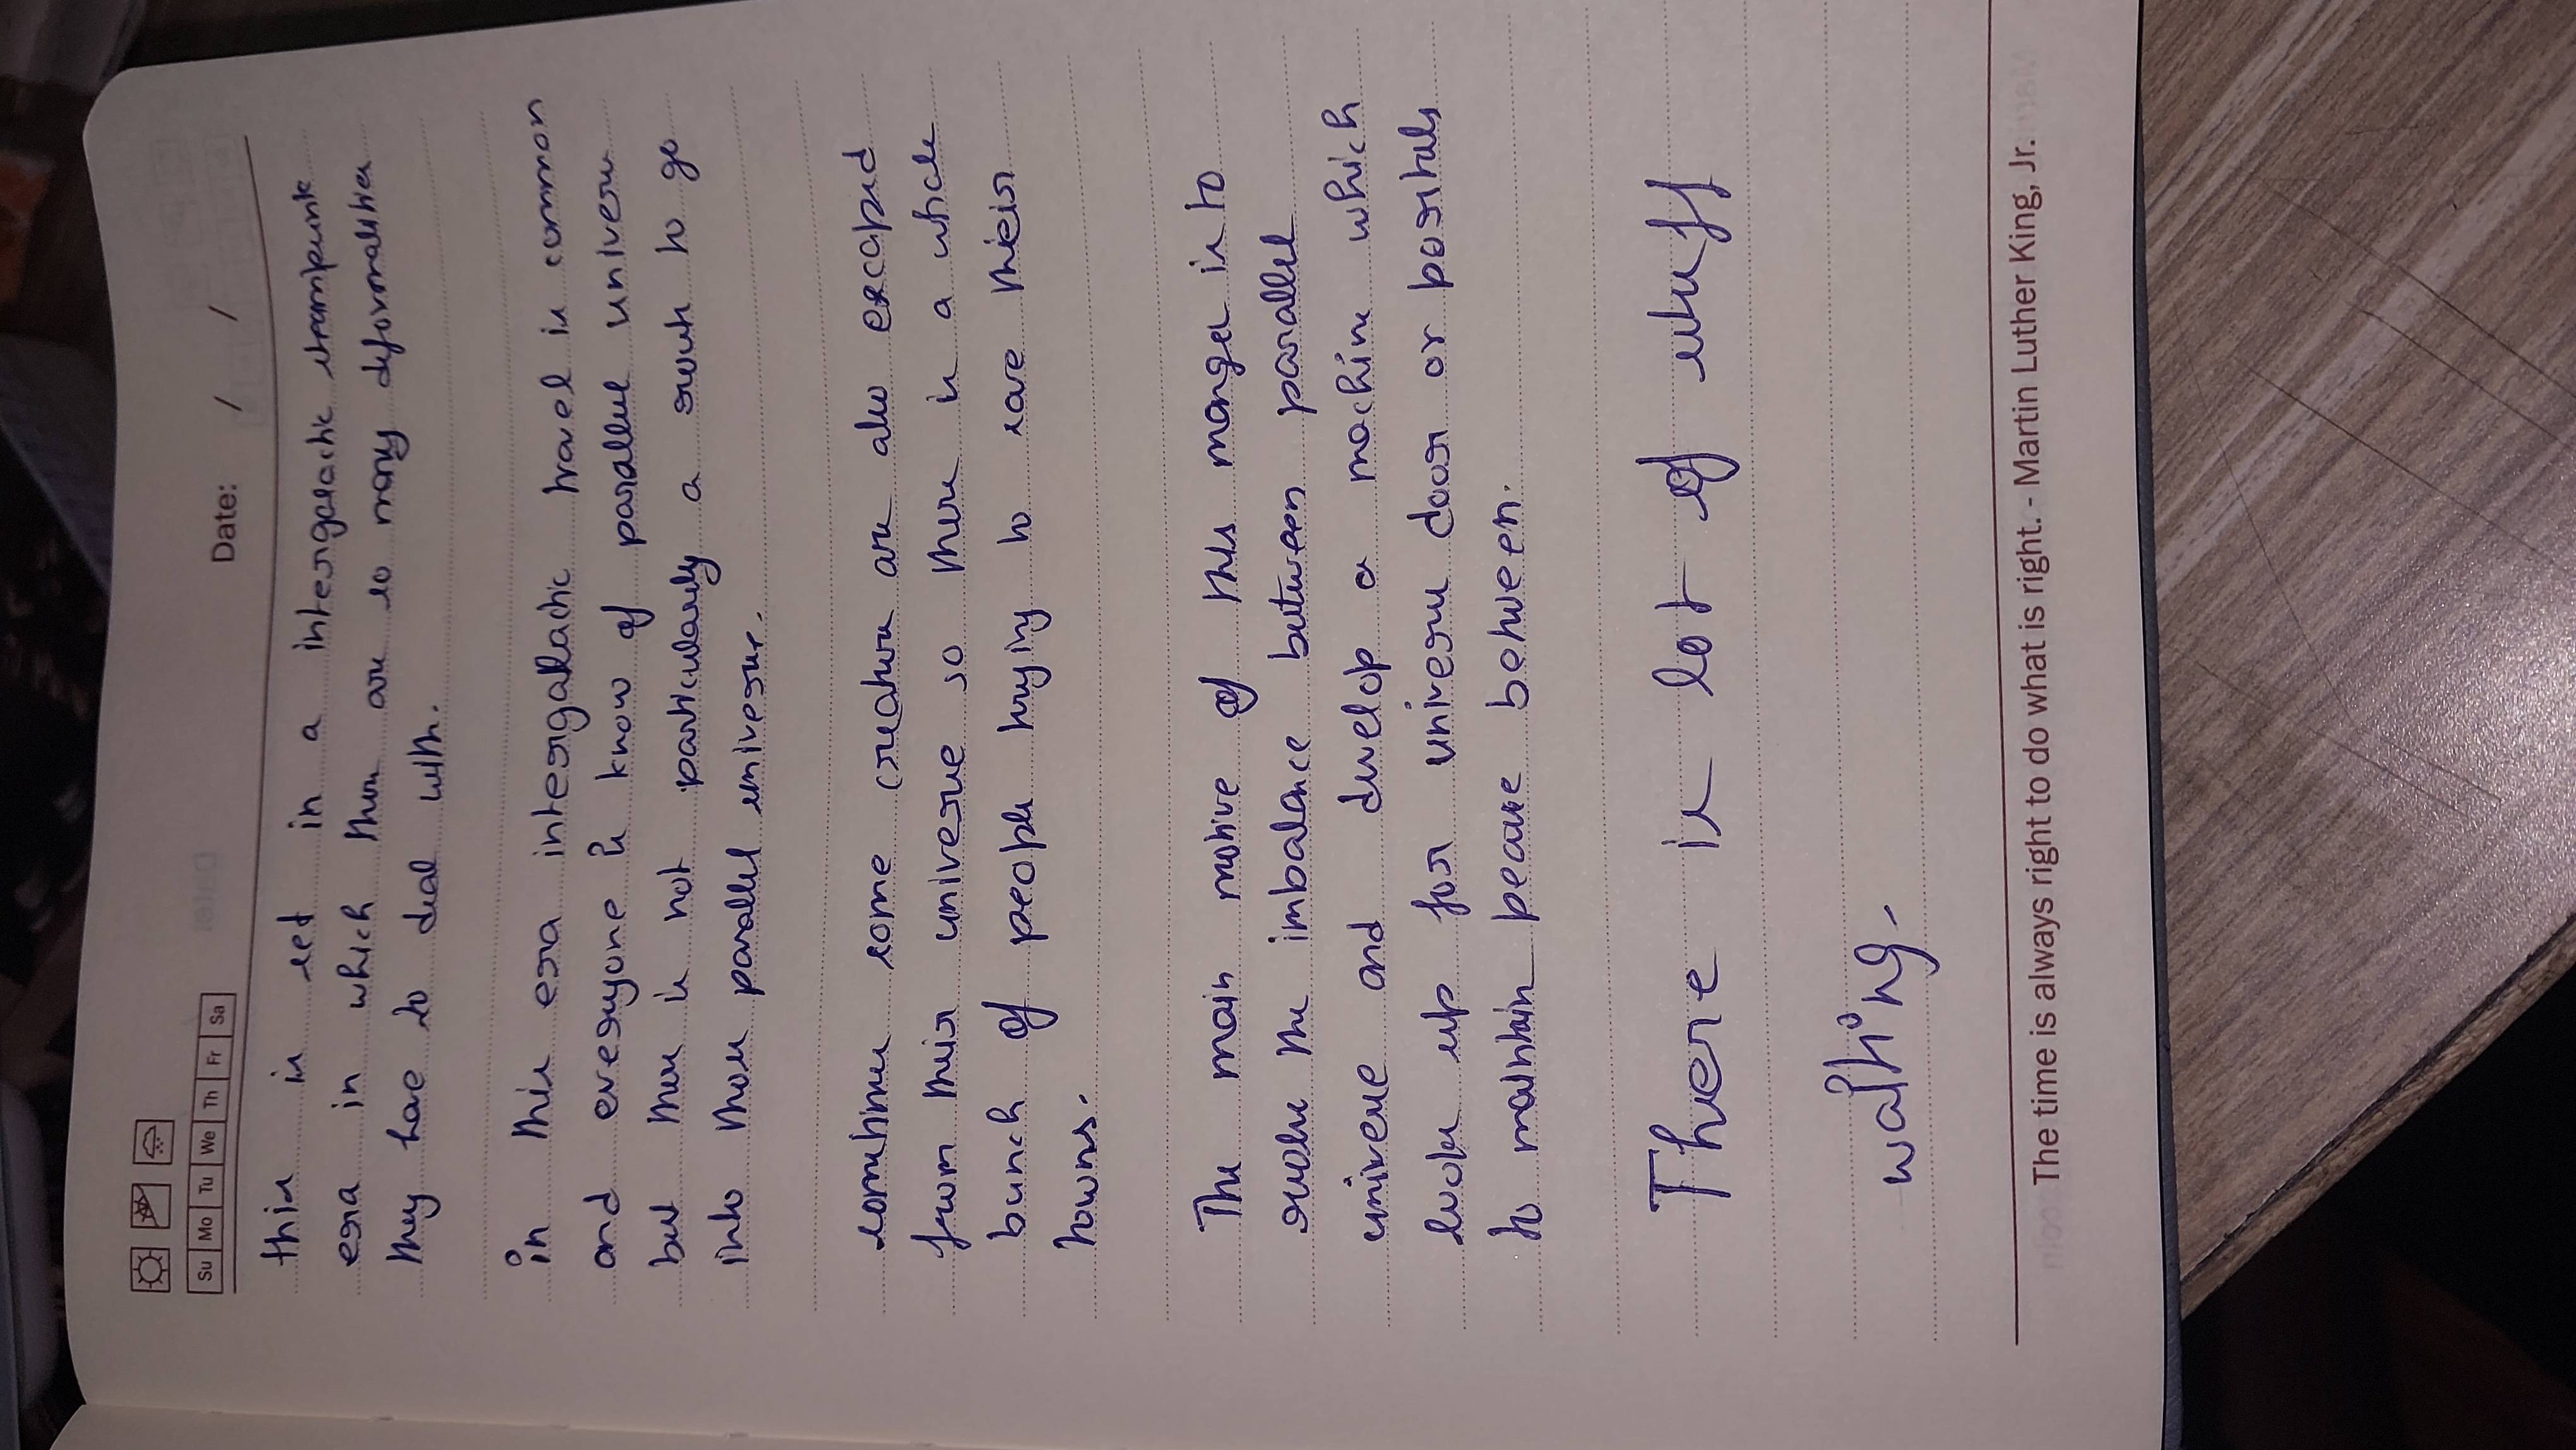 Su Mo Tu We Th Fr Sa
Date: / /
this is set in a intergalactic steampunk
era in which there are so many deformalities
they hae to deal with.
in this era intergallactic travel is common
and everyone is know of parallel universe
but there is not particularly a route to go
into those parallel universe.
sometimes some creature are also escaped
from their universe so there is a whole
bunch of people trying to save their
towns.
The main motive of this manga is to
the imbalance between parallel
universe and develop a machine which
looks up for universe door or portals
to maintain between.
There is lot of stuff
waiting.
The time is always right to do what is right. - Martin Luther King, Jr.